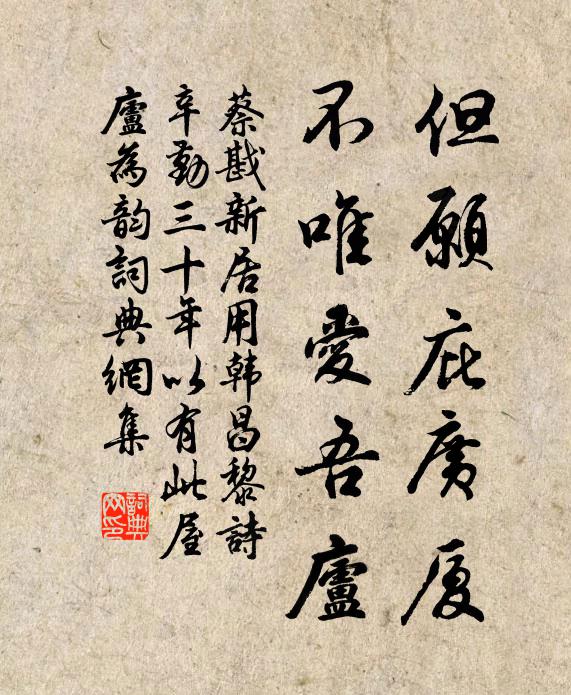 但願庇廣厦
不唯愛吾廬
蔡戡新居用韩昌黎詩
辛勤三十年以有此屋
廬為韵詞典網集
詞典网印